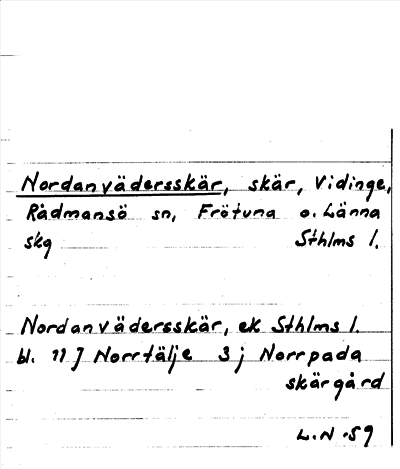 Nordanvädersskär, skär, Vidinge,
Rådmansö sn, Frötuna o. Länna
skg Sthlms l.
Nordanvädersskär, ek Sthlms l.
bl. 11J Norrtälje 3j Norrpada
skärgård
L.N.59